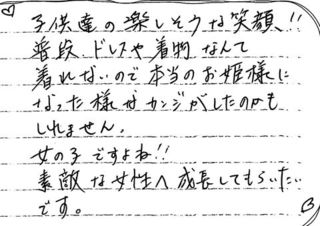 子供達の楽しそうな笑顔!!
普段、ドレスや着物なんて
着れないので本当のお姫様に
なった様なカンジがしたのかも
しれません。
女の子ですよね!!
素敵な女性へ成長してもらいたい
です。